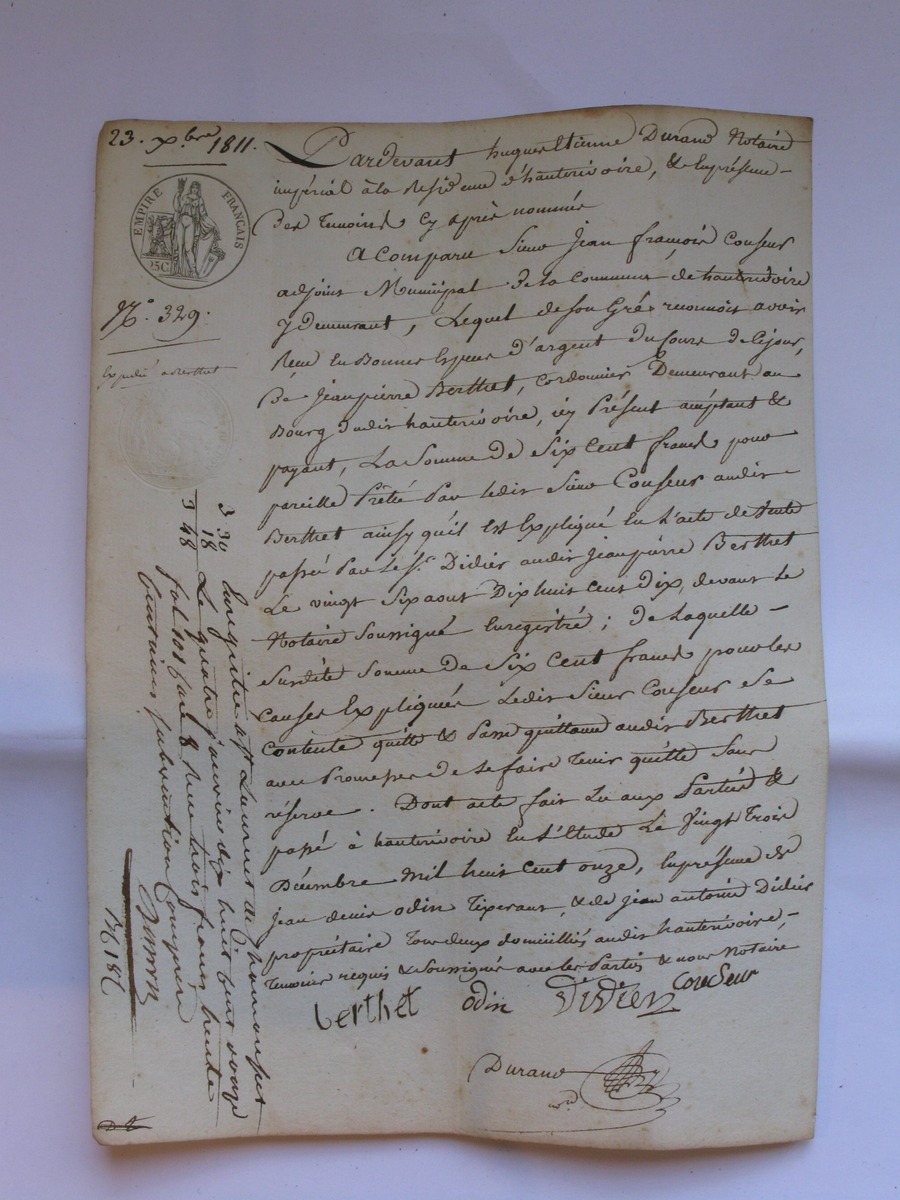 23. Xbre 1811.
EMPIRE FRANÇAIS
25C
N.° 329.
Expédié à Berthet
Pardevant hugues Etienne Durand Notaire
impérial à la Residence d'hauterivoire, & En présence
Des Temoins Cy après nommés
A Comparu Sieur Jean françois Couseur
adjoint Municipal de la Commune de hauterivoire
y demeurant, Lequel de son Gré reconnoit avoir
Reçu En Bonnes Especes d'argent du Cours de Cejour,
De Jeanpierre Berthet, Cordonnier Demeurant au
Bourg dudit hauterivoire, icy Présent acceptant &
payant, La Somme De Six Cent francs pour
pareille Prêtée Par ledit Sieur Couseur audit
Berthet ainsy qu'il Est Expliqué En L'acte de Vente
passé Par le Sr. Didier audit Jeanpierre Berthet
Le vingt Six aout Dix huit Cent dix, devant le
Notaire Soussigné Enregistré; de Laquelle
Susdite Somme De Six Cent francs pour les
Causes Expliquées Ledit Sieur Couseur Se
Contente quitte & Passe quittance audit Berthet
avec Promesse De le faire Tenir quitte Sans
réserve. Dont acte fait Lu aux Parties &
passé à hauterivoire En L'Etude Le Vingt Trois
Décembre Mil huit Cent onze, En présence de
Jean denis odin Tixerant, & de Jean antoine Didier
propriétaire Tous deux domiciliés audit hauterivoire,
Temoins requis & Soussignés avec les Parties & nous Notaire
berthet odin Didier Couseur
Durand
Enregistré à St Laurent de Chamousset
Le quatre janvier dix huit cent douze
fol 101 Case 8 Reçu trois francs trente
Centimes Subvention Comprise
3 30
18
3 48